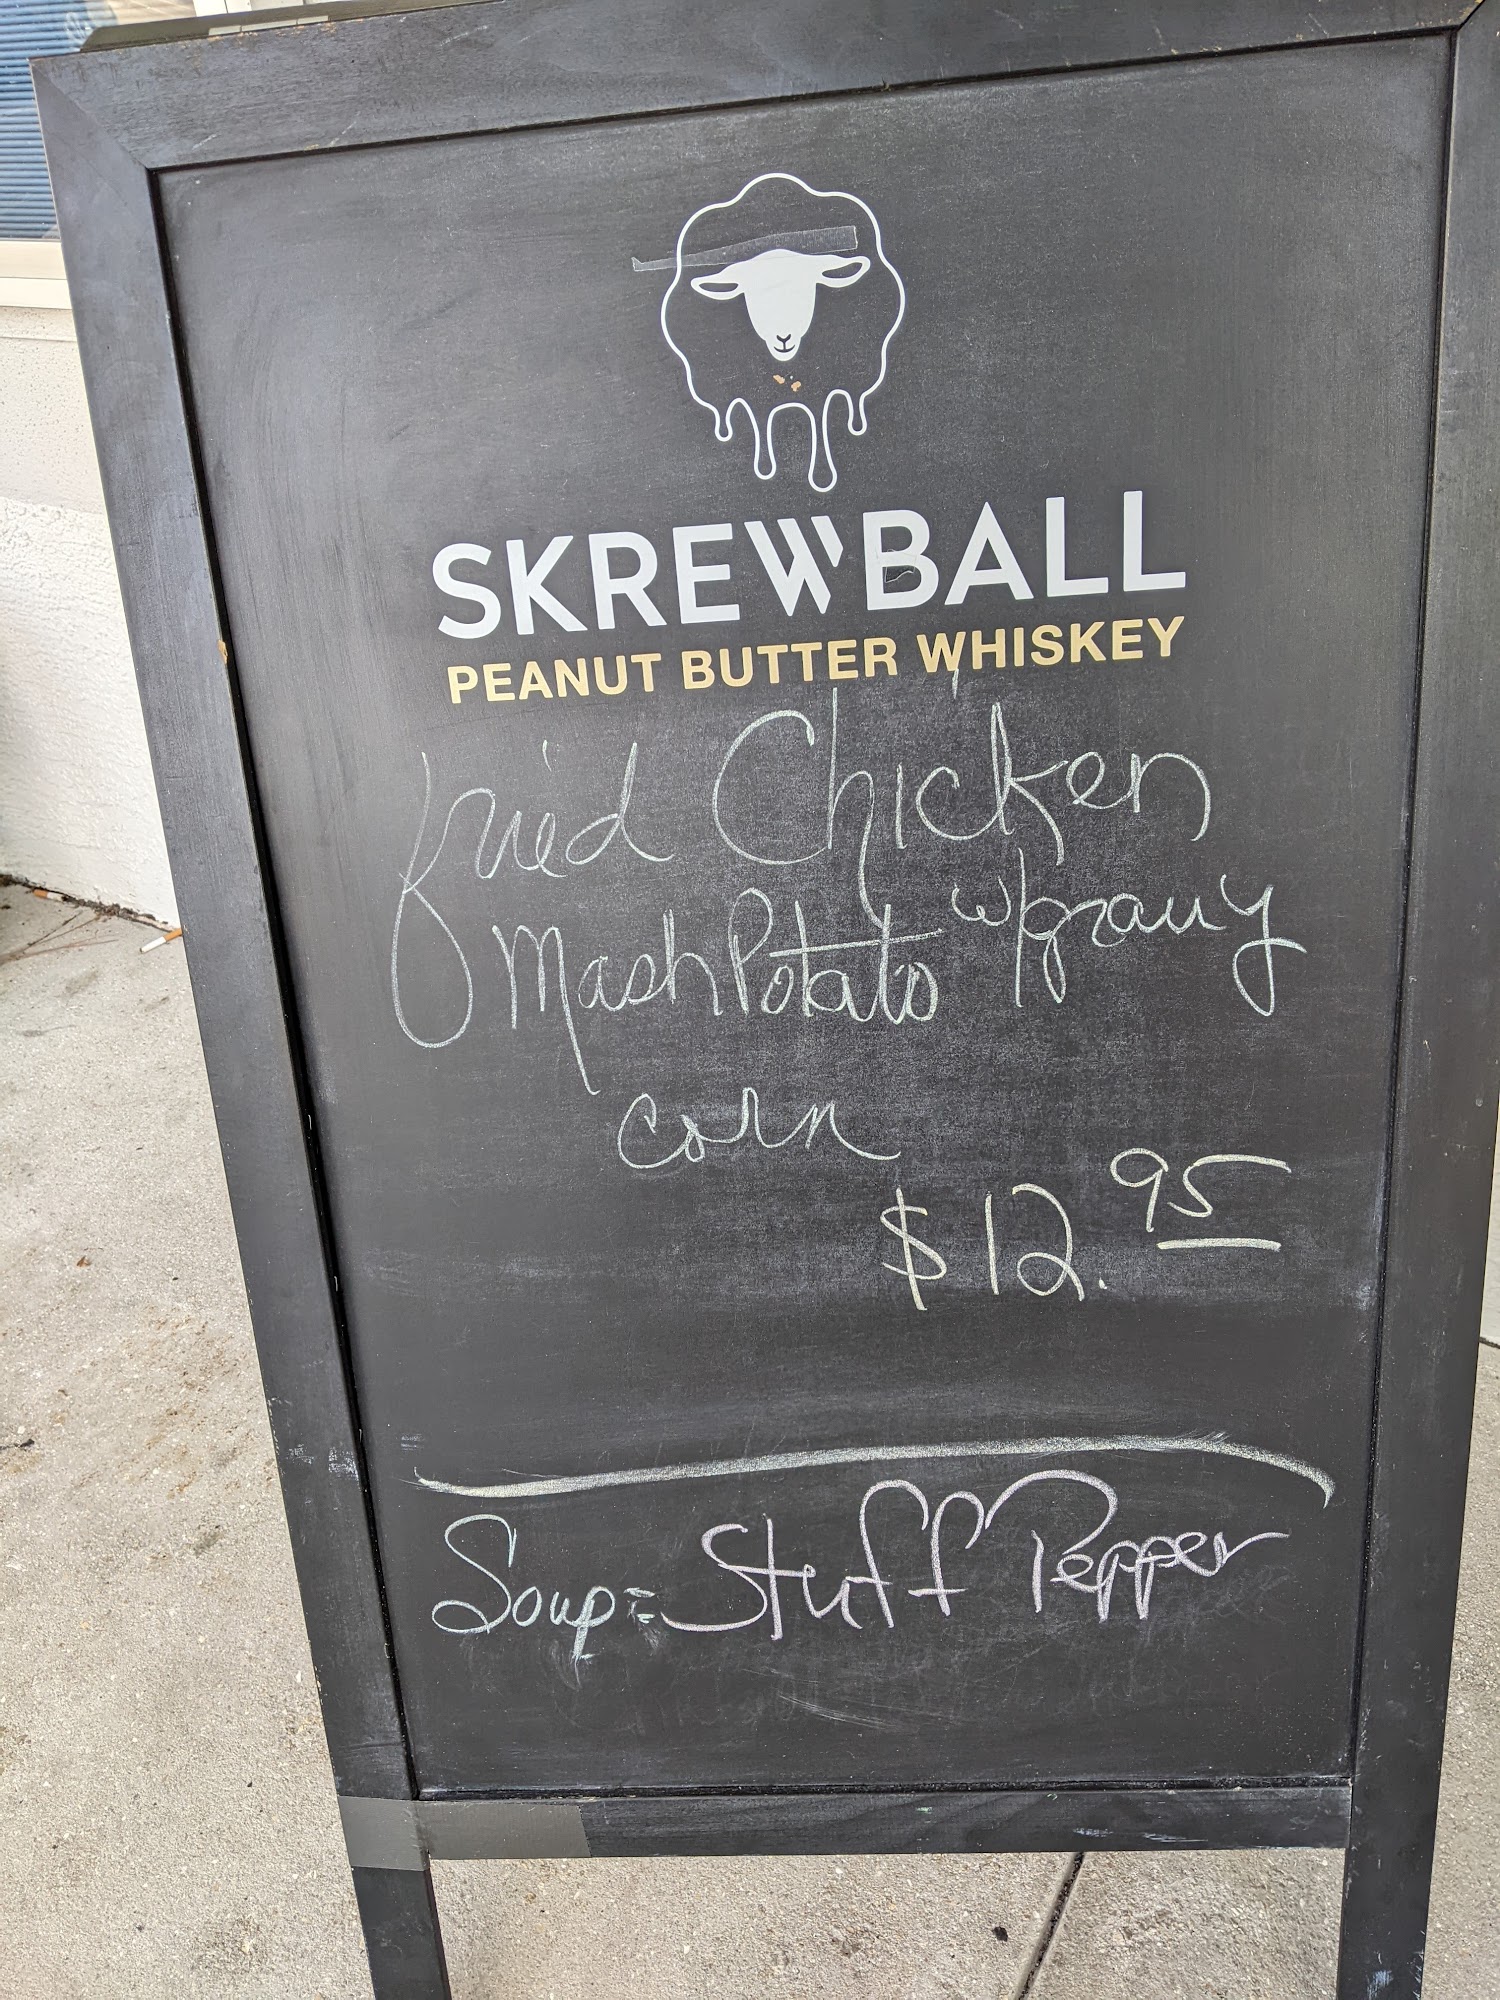 SKREWBALL
PEANUT BUTTER WHISKEY
fried Chicken
Mash Potato w/gravy
corn
$12.95
Soup = Stuff Pepper